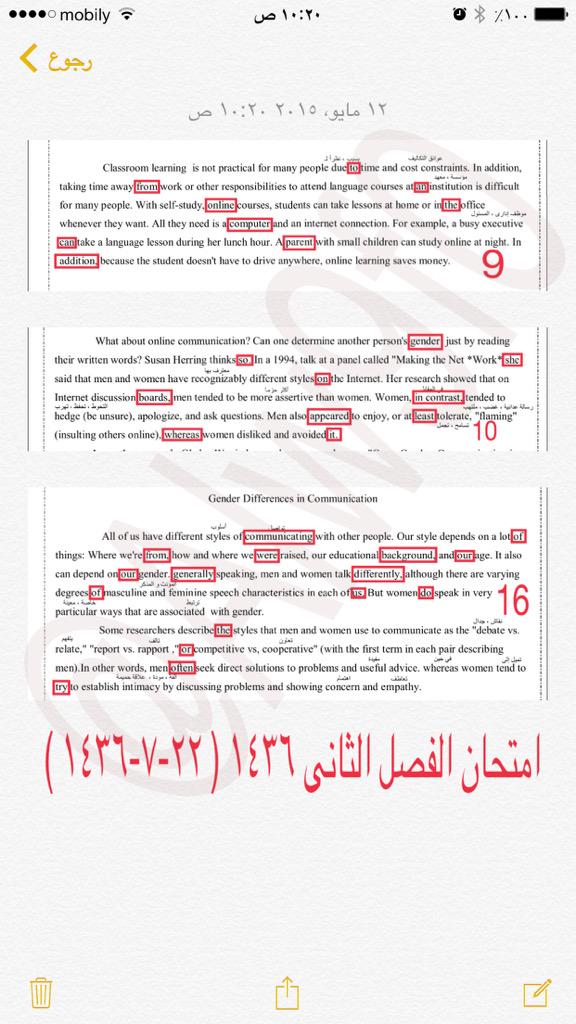 mobily ١٠:٢٠ ص ٪١٠٠
رجوع
١٢ مايو، ٢٠١٥ ١٠:٢٠ ص
بسبب ، نظراً لـ عوائق التكاليف
Classroom learning is not practical for many people due to time and cost constraints. In addition,
مؤسسة ، معهد
taking time away from work or other responsibilities to attend language courses at an institution is difficult
for many people. With self-study, online courses, students can take lessons at home or in the office
موظف إدارى ، المسئول
whenever they want. All they need is a computer and an internet connection. For example, a busy executive
can take a language lesson during her lunch hour. A parent with small children can study online at night. In
addition, because the student doesn't have to drive anywhere, online learning saves money.
9
What about online communication? Can one determine another person's gender just by reading
their written words? Susan Herring thinks so. In a 1994, talk at a panel called "Making the Net *Work* she
معترف بها
said that men and women have recognizably different styles on the Internet. Her research showed that on
أكثر حزما فى المقابل
Internet discussion boards, men tended to be more assertive than women. Women, in contrast, tended to
رسالة عدائية ، غضب ، ملتهب
hedge (be unsure), apologize, and ask questions. Men also appeared to enjoy, or at least tolerate, "flaming"
تسامح ، تحمل
(insulting others online), whereas women disliked and avoided it.
10
Gender Differences in Communication
أسلوب تواصل
All of us have different styles of communicating with other people. Our style depends on a lot of
things: Where we're from, how and where we were raised, our educational background, and our age. It also
can depend on our gender. generally speaking, men and women talk differently, although there are varying
المؤنث و المذكر
degrees of masculine and feminine speech characteristics in each of us. But women do speak in very
خاصة ، معينة ترتبط
particular ways that are associated with gender.
16
نقاش ، جدال
Some researchers describe the styles that men and women use to communicate as the "debate vs.
تآلف تعاون
relate," "report vs. rapport ," or competitive vs, cooperative" (with the first term in each pair describing
مفيدة فى حين تميل إلى
men).In other words, men often seek direct solutions to problems and useful advice. whereas women tend to
ألفة ، مودة ، علاقة حميمة اهتمام تعاطف
try to establish intimacy by discussing problems and showing concern and empathy.
امتحان الفصل الثانى ١٤٣٦ ( ٢٢-٧-١٤٣٦ )